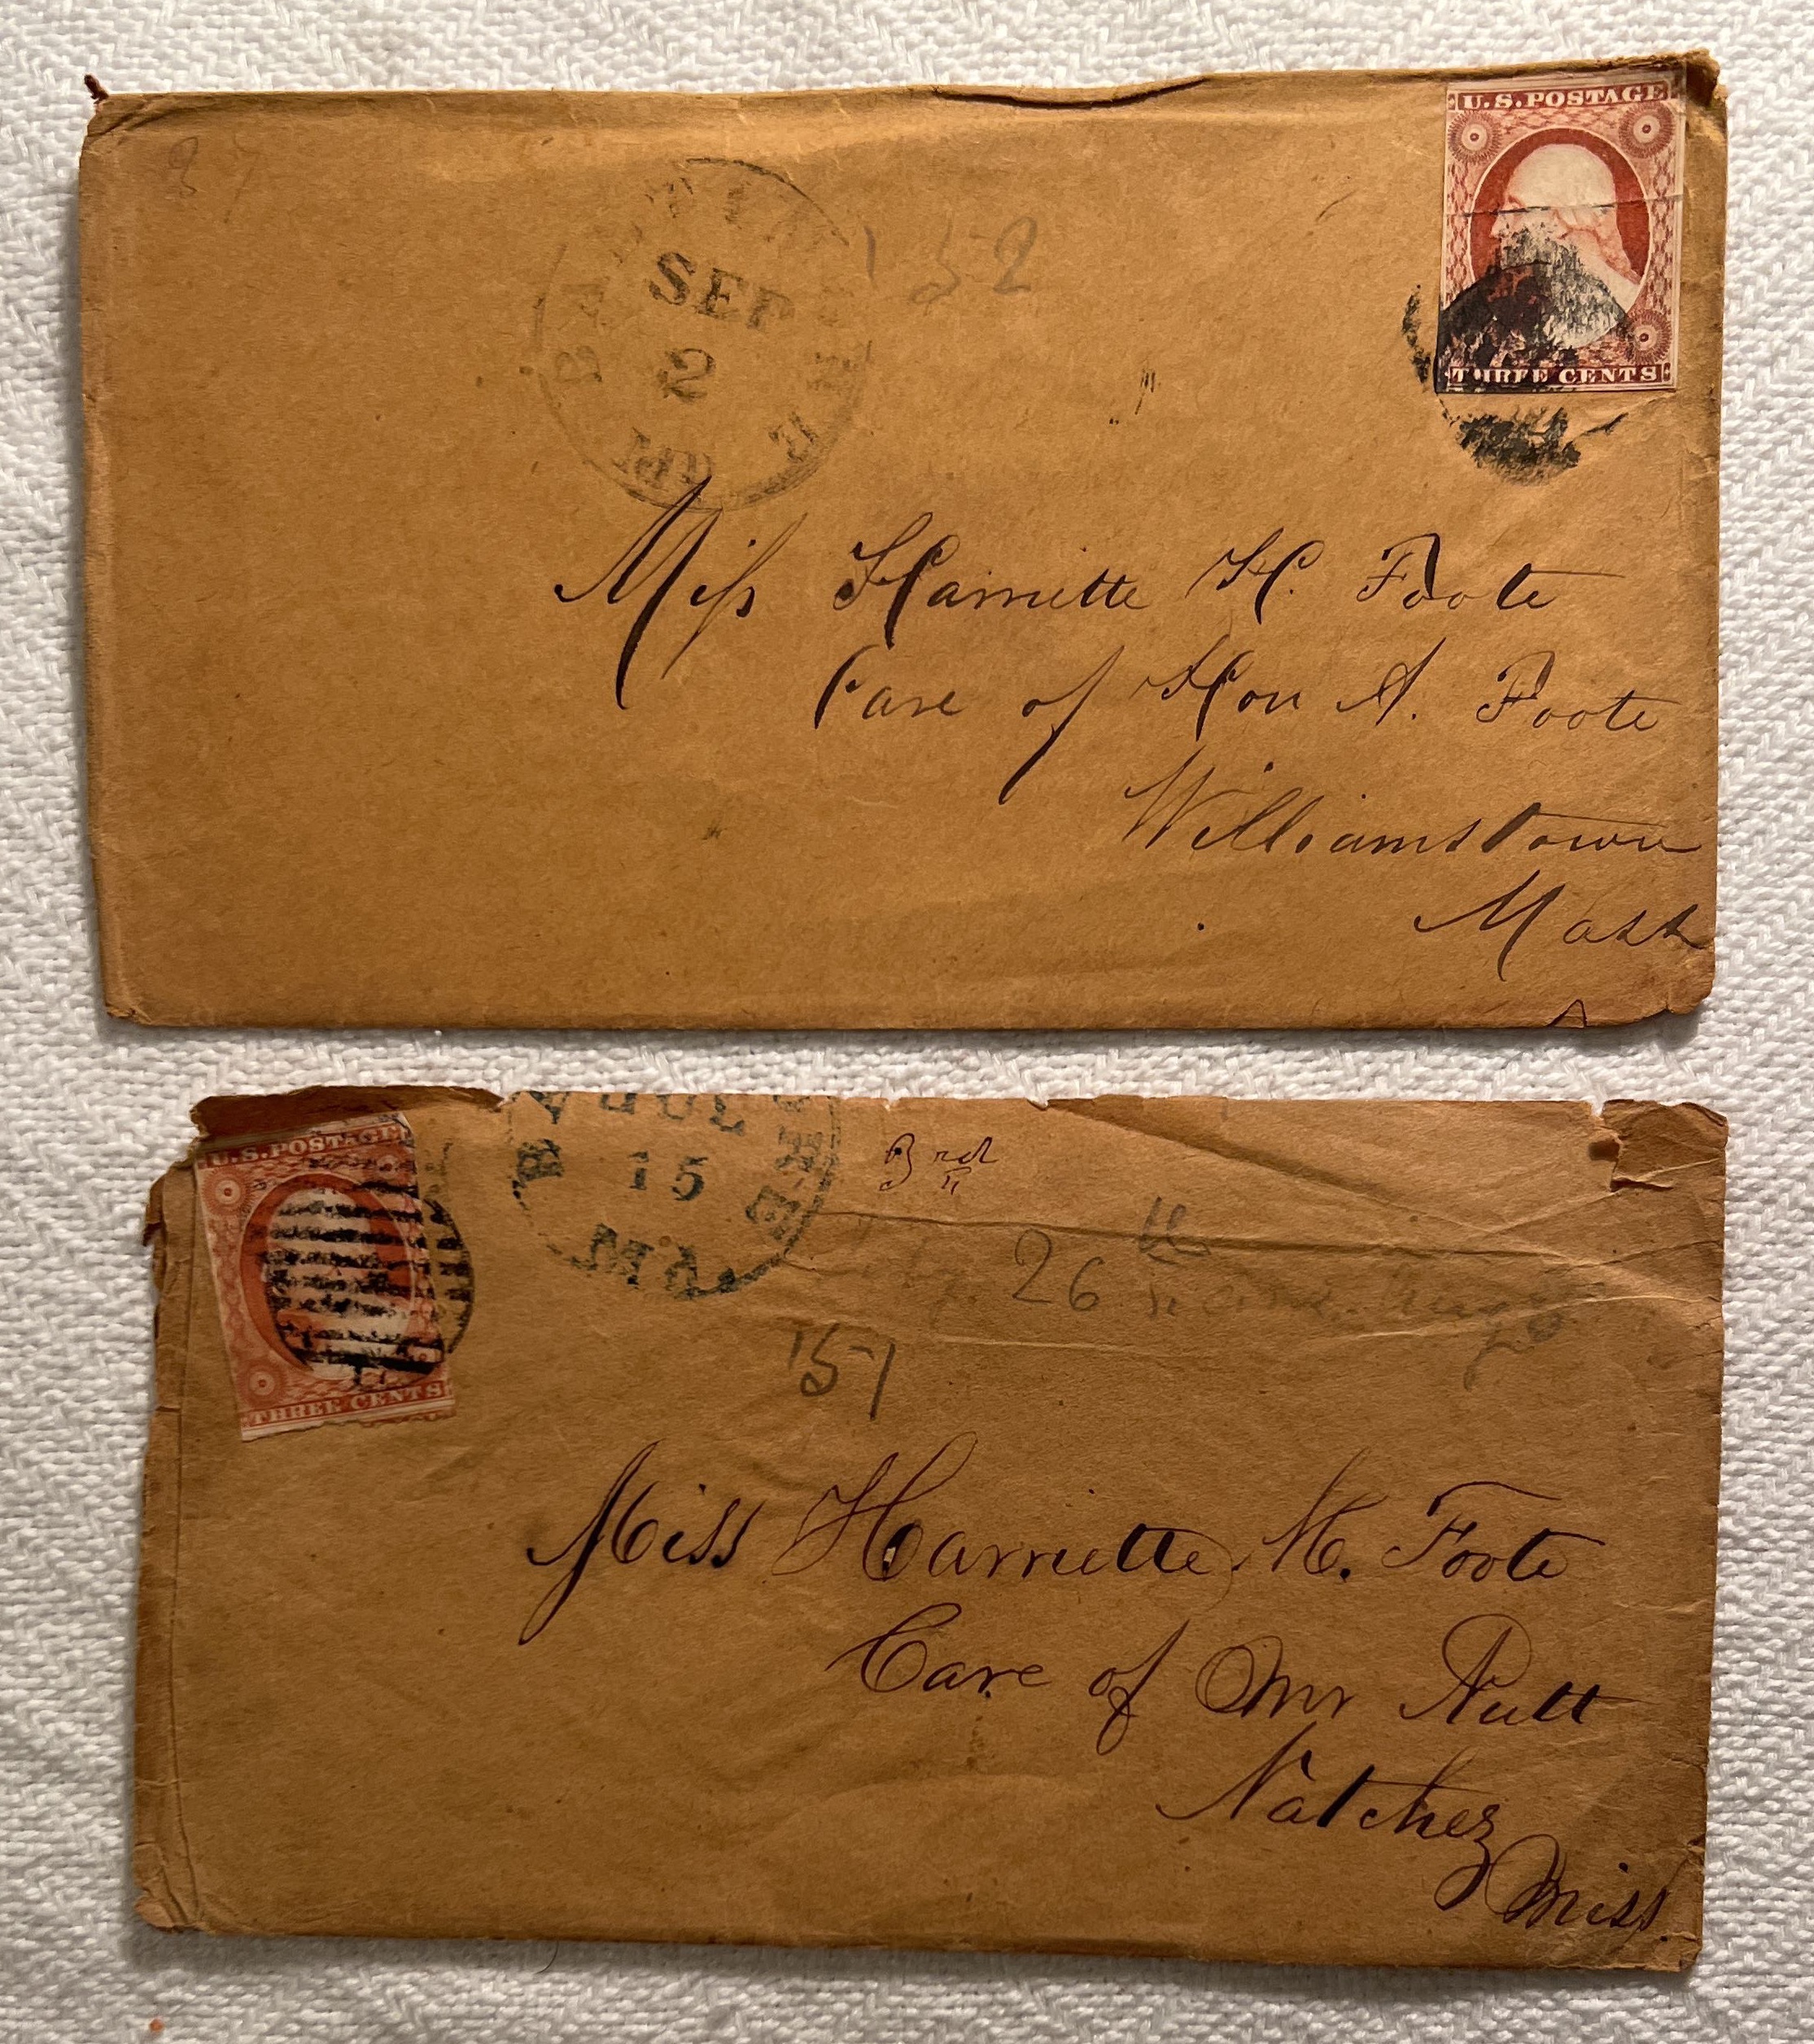 37
U.S.POSTAGE
THREE CENTS
SEP
2
MD
152
Miss Harriette H. Foote
Care of Hon A. Foote
Williamstown
Mass
U.S.POSTAGE
THREE CENTS
15
Md.
3rd
26th
'51
Miss Harriette M. Foote
Care of Mr Nutt
Natchez
Miss.